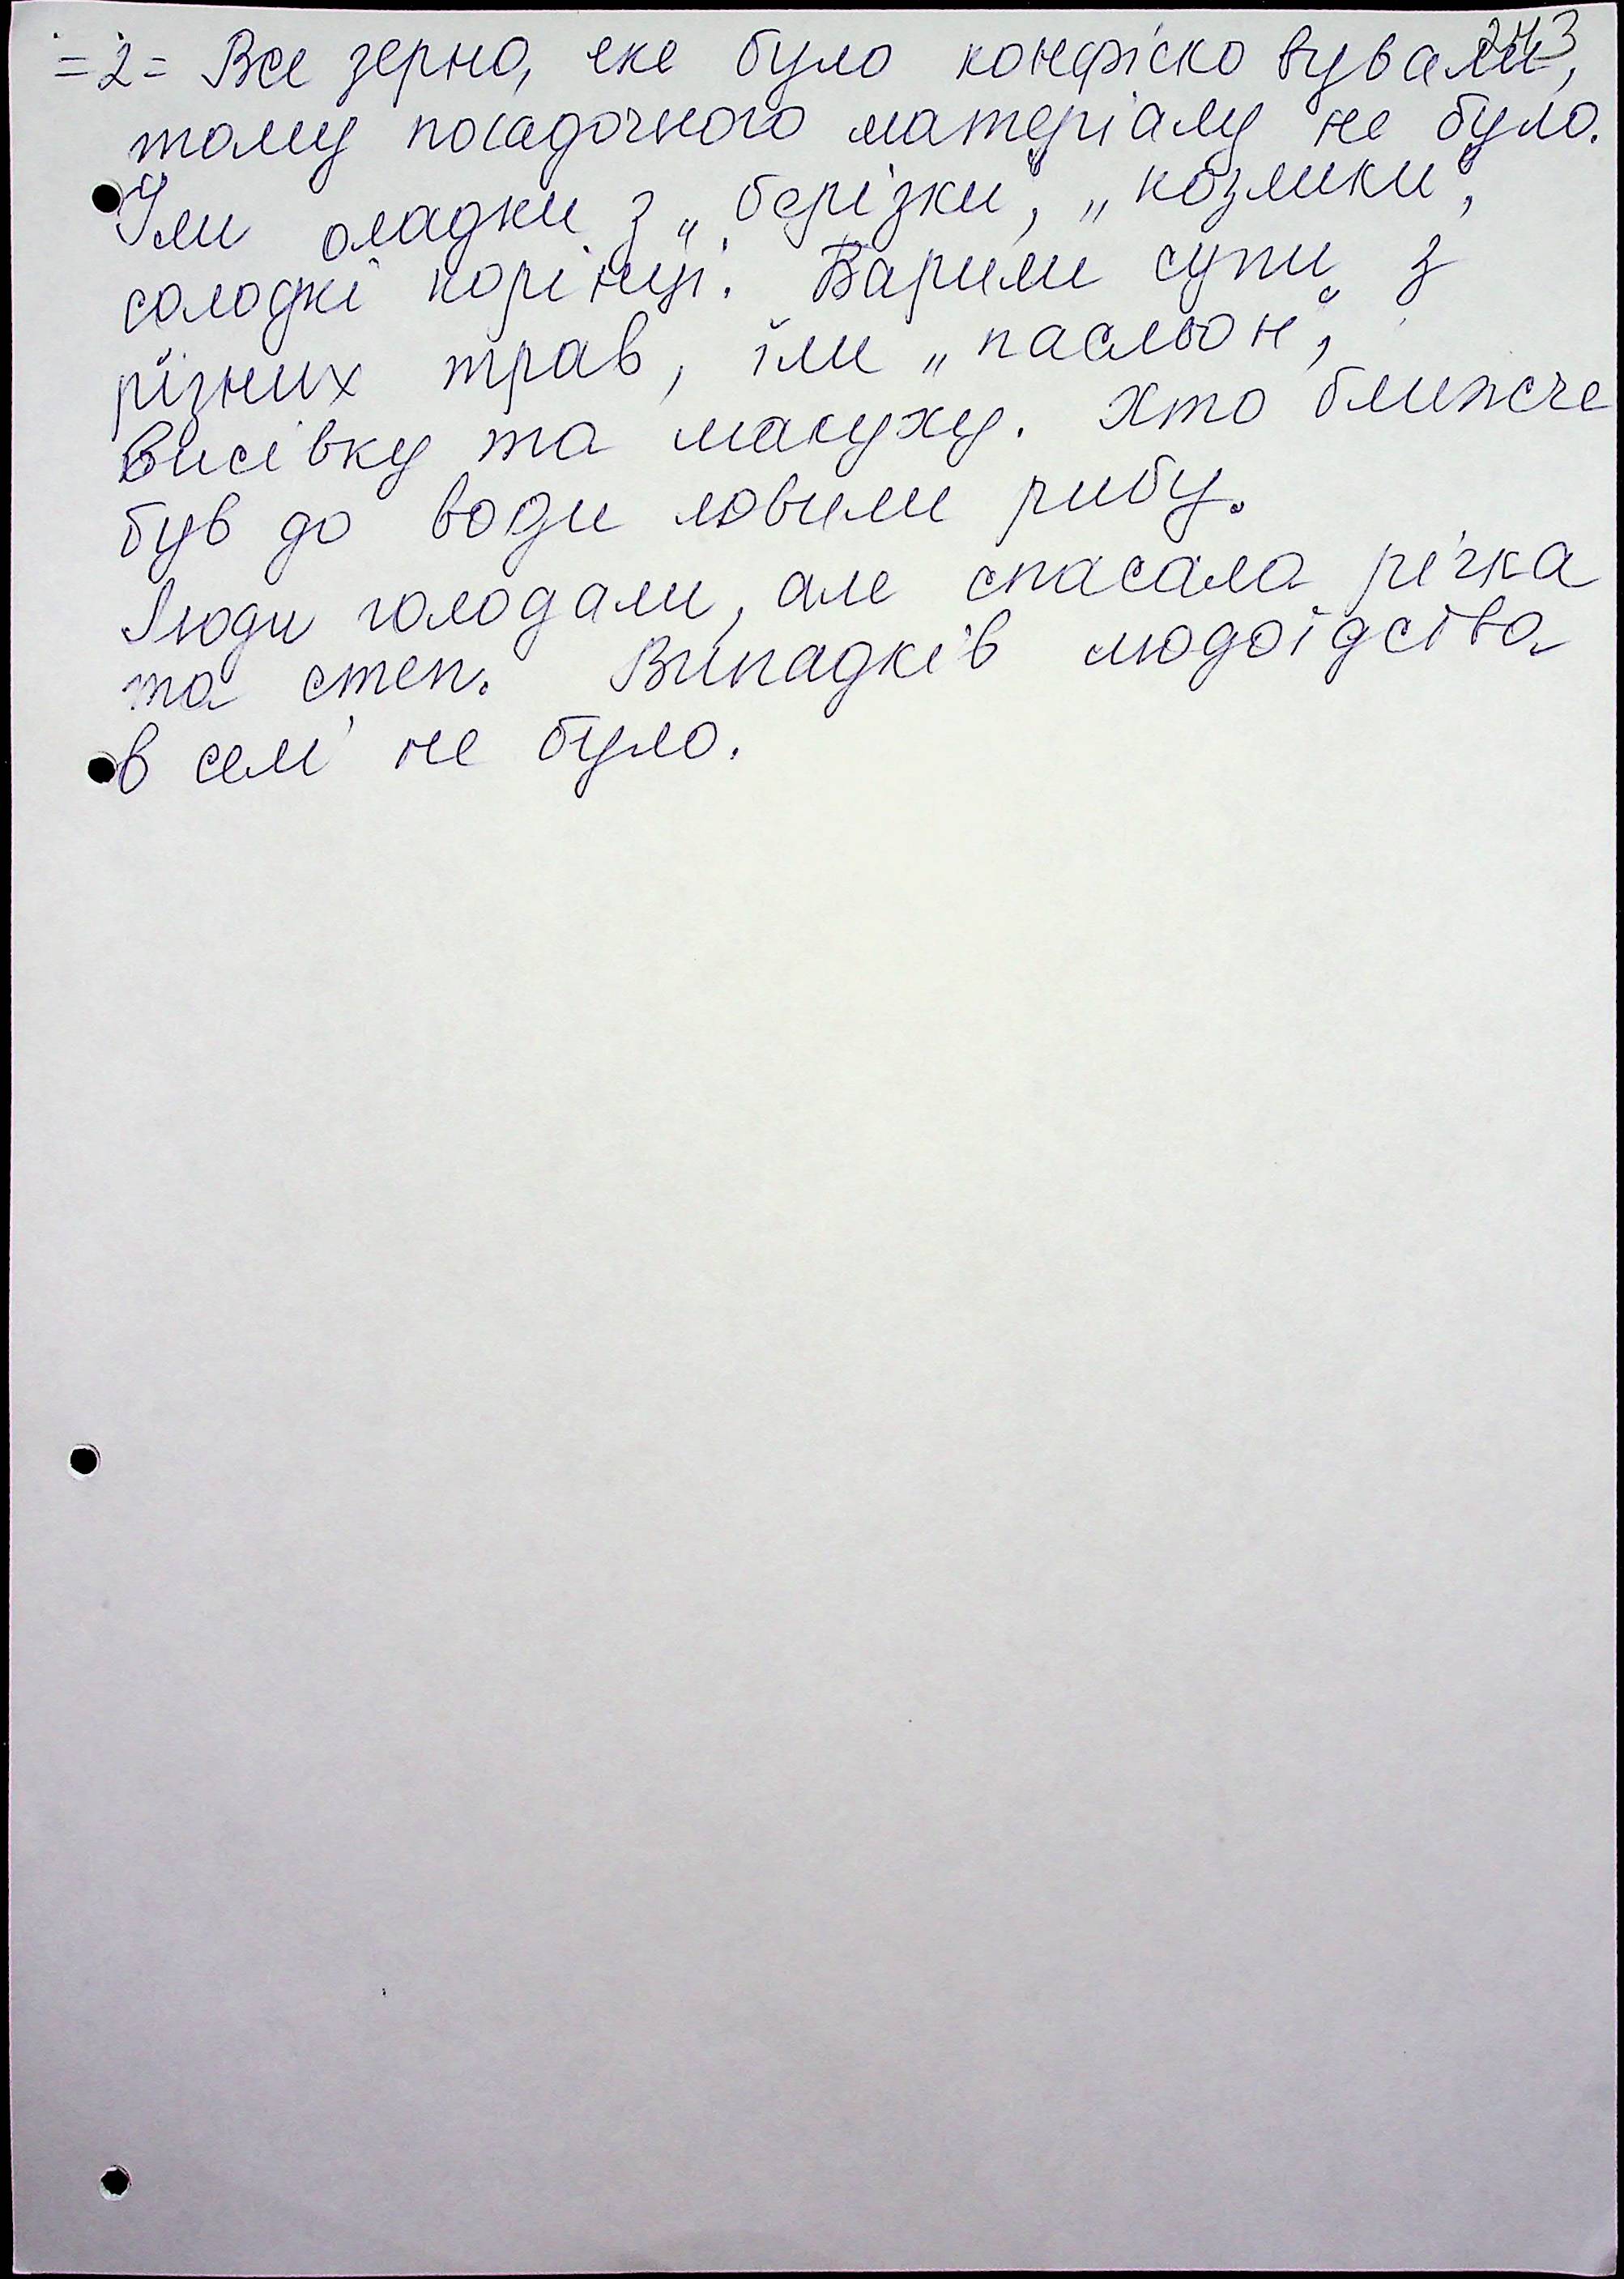 243
=2= Все зерно, яке було конфісковували,
тому посадочного матеріалу не було.
Їли оладки з „берізки", „козлики",
солодкі корінці. Варили супи з
різних трав, їли „пасльон",
висівку та макуху. Хто ближче
був до води ловили рибу.
Люди голодали, але спасала річка
та степ. Випадків людоїдства
в селі не було.